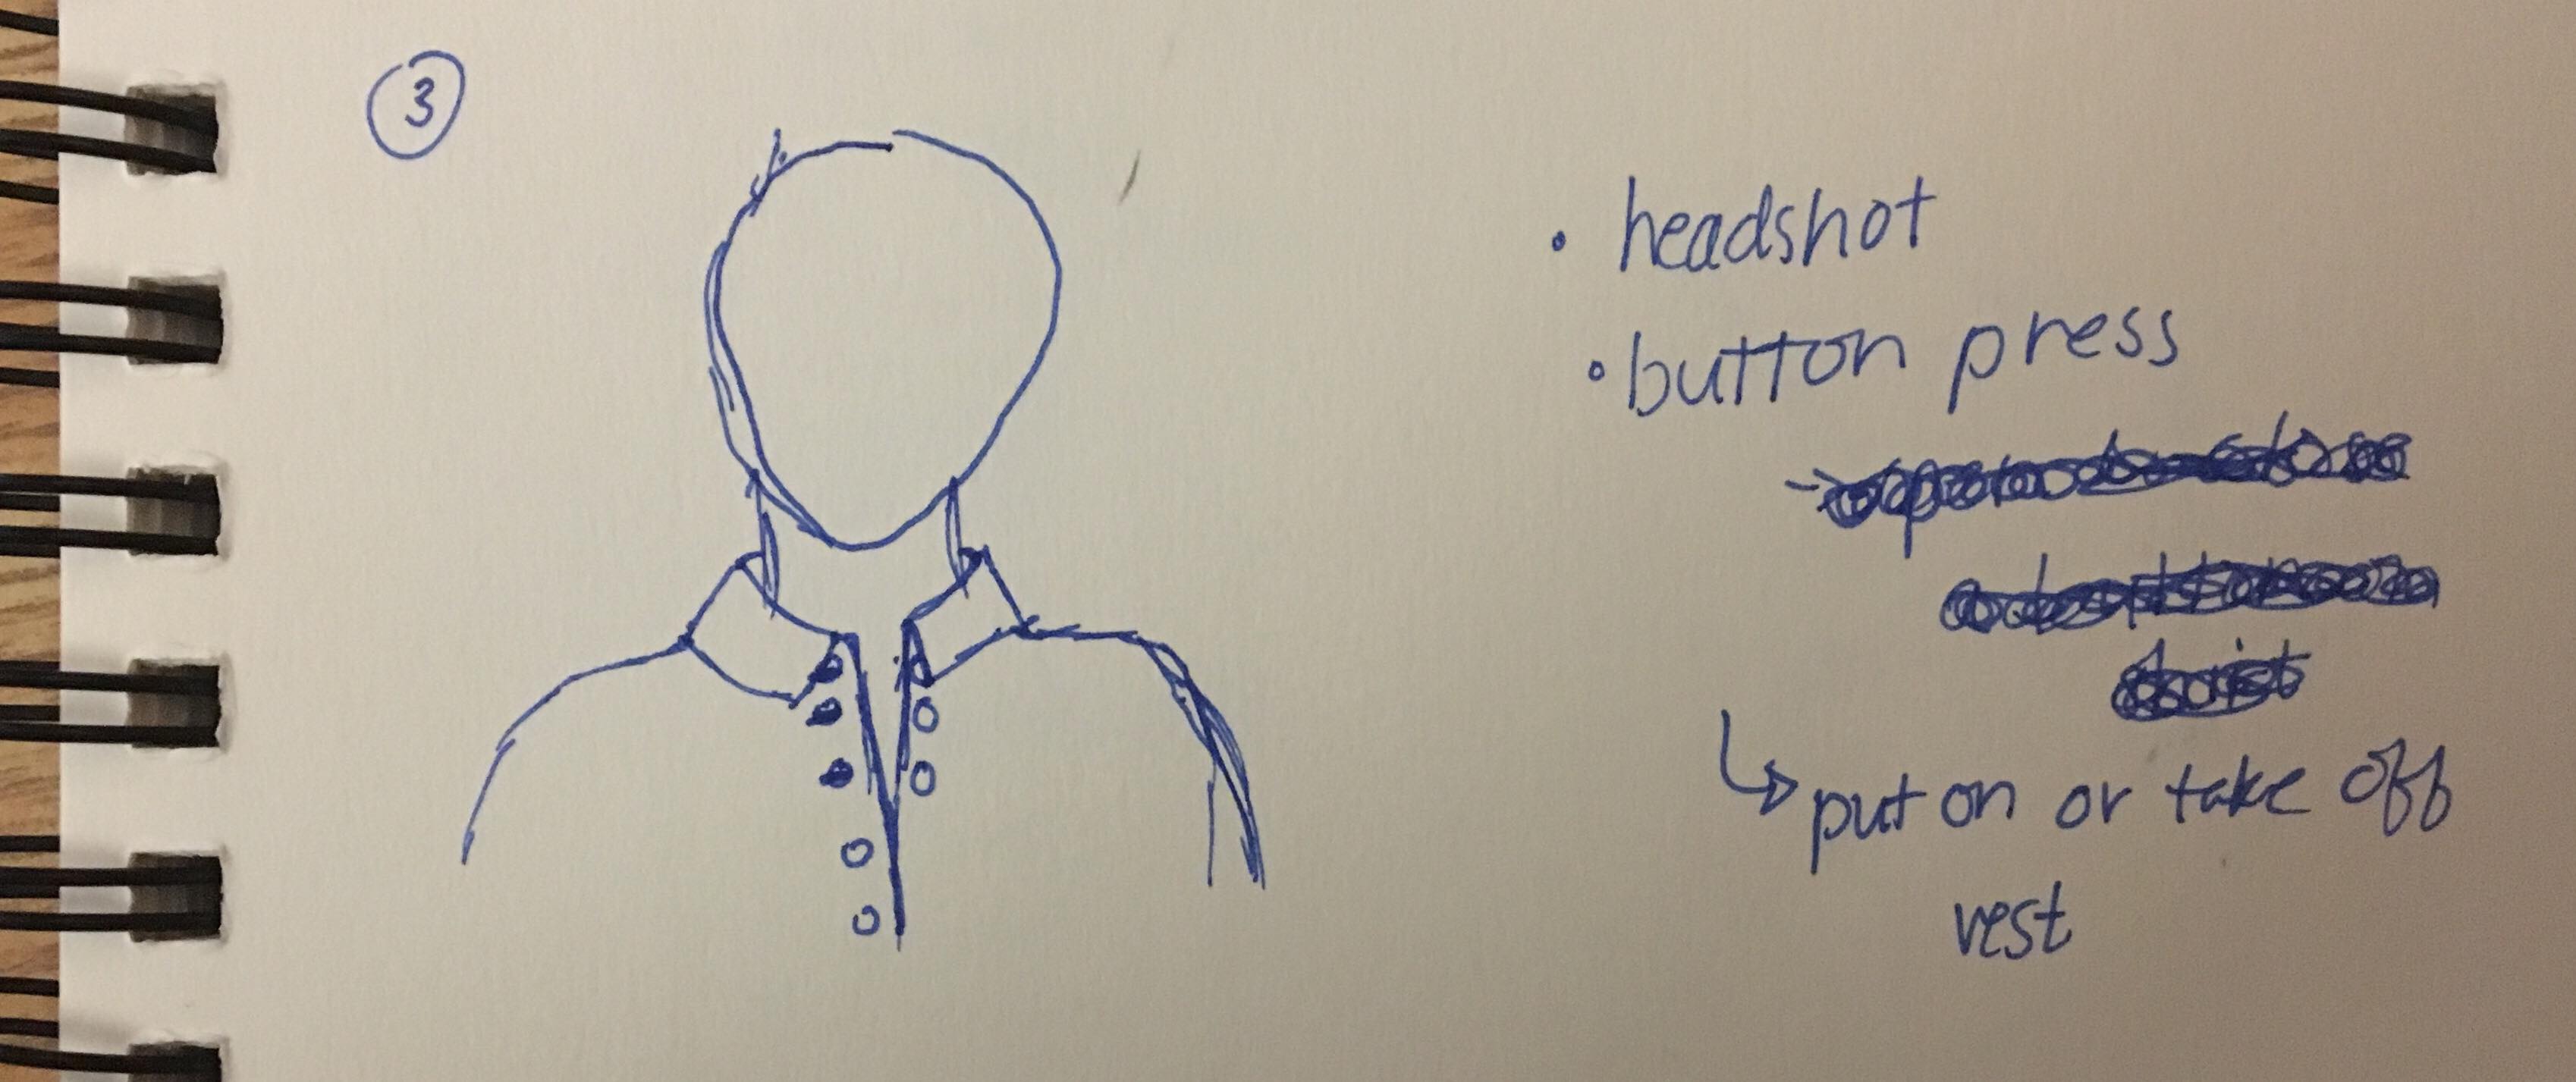 3
• headshot
• button press
↳ put on or take off
vest